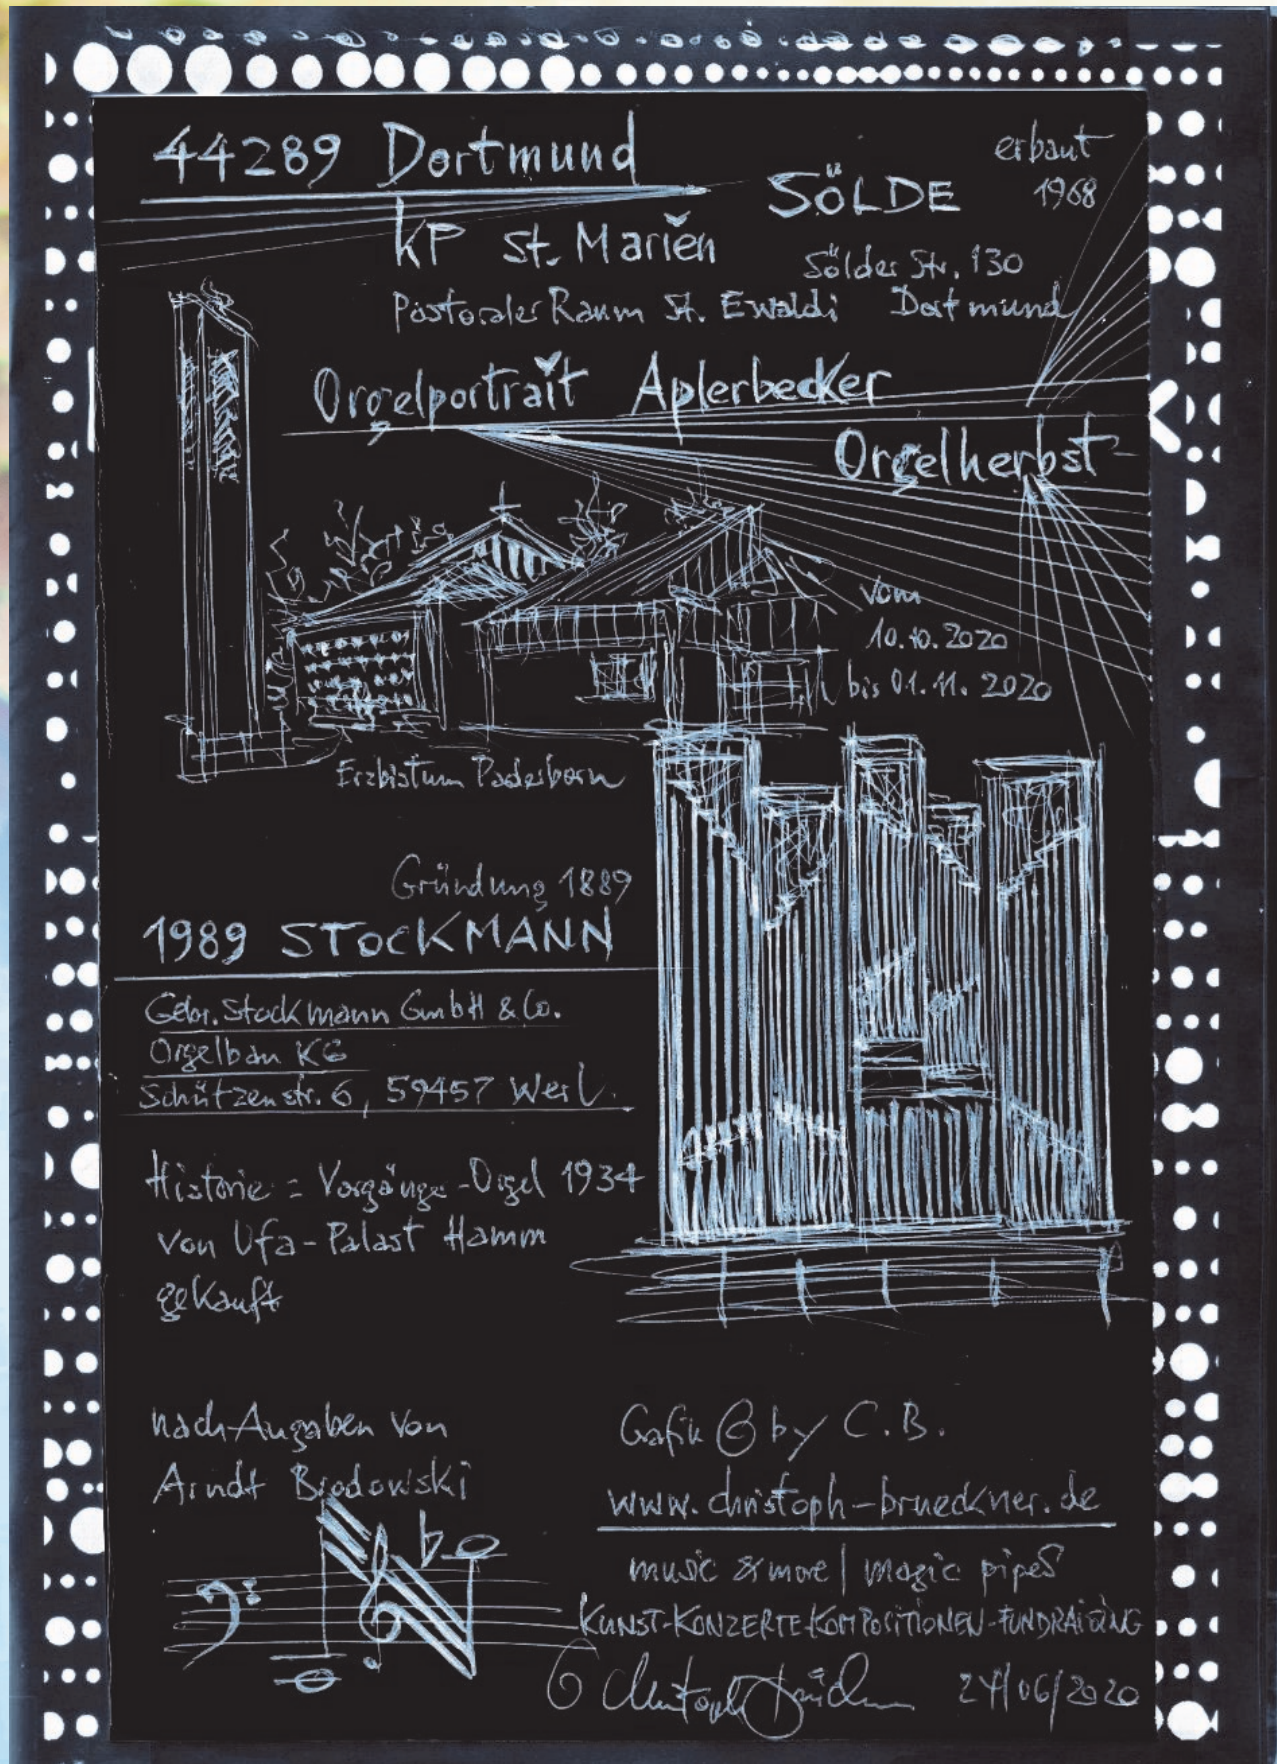 44289 Dortmund
erbaut
1968
SÖLDE
KP St. Marien
Sölder Str. 130
Pastoraler Raum St. Ewaldi Dortmund
Orgelportrait Aplerbecker
Orgelherbst
vom
10.10.2020
bis 01.11.2020
Erzbistum Paderborn
Gründung 1889
1989 STOCKMANN
Gebr. Stockmann GmbH & Co.
Orgelbau KG
Schützenstr. 6, 59457 Werl.
Historie = Vorgänge-Orgel 1934
von Ufa-Palast Hamm
gekauft
nach Angaben von
Arndt Brodowski
Grafik © by C.B.
www.christoph-brueckner.de
music & more | magic pipes
KUNST-KONZERTE-KOMPOSITIONEN-FUNDRAISING
24/06/2020